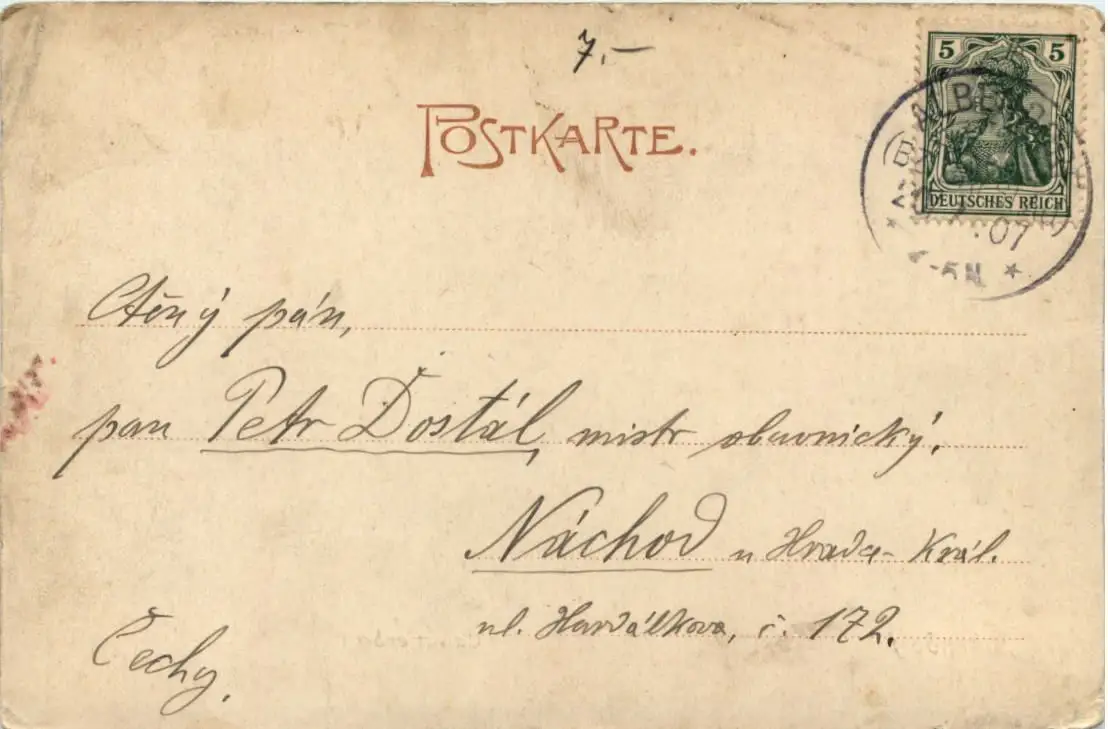 7,—
5 5
POSTKARTE.
DEUTSCHES REICH
07
Ctěný pán,
pan Petr Dostál, mistr obuvnický.
Náchod u Hradce Král.
ul. č. 172.
Čechy.